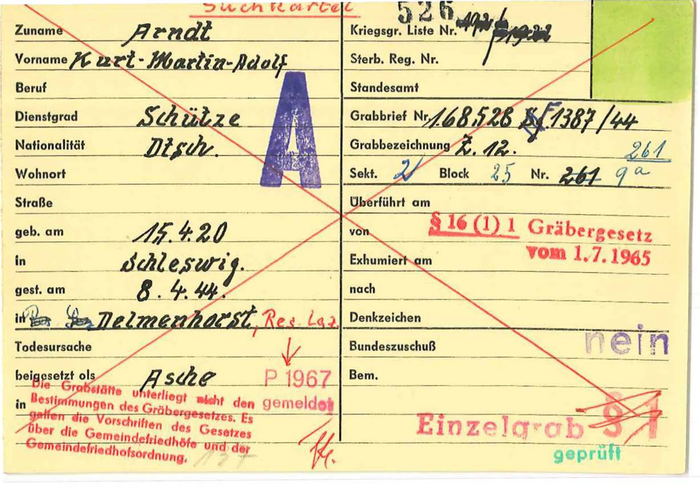 Suchkartei
526
Zuname Arndt
Vorname Kurt-Martin-Adolf
Beruf
Dienstgrad Schütze
Nationalität Dtsch.
Wohnort
Straße
geb. am 15.4.20
in Schleswig.
gest. am 8.4.44.
in Delmenhorst, Res. Laz
Todesursache
beigesetzt als Asche
in
A
P 1967
gemeldet
Die Grabstätte unterliegt nicht den
Bestimmungen des Gräbergesetzes. Es
gelten die Vorschriften des Gesetzes
über die Gemeindefriedhöfe und der
Gemeindefriedhofsordnung.
Kriegsgr. Liste Nr.
Sterb. Reg. Nr.
Standesamt
Grabbrief Nr. 168528 1387/44
Grabbezeichnung Z. 12.
261
Sekt. 2 Block 25 Nr. 261 9a
Überführt am
von
§ 16 (1) 1 Gräbergesetz
vom 1.7.1965
Exhumiert am
nach
Denkzeichen
Bundeszuschuß nein
Bem.
Einzelgrab § 1
geprüft